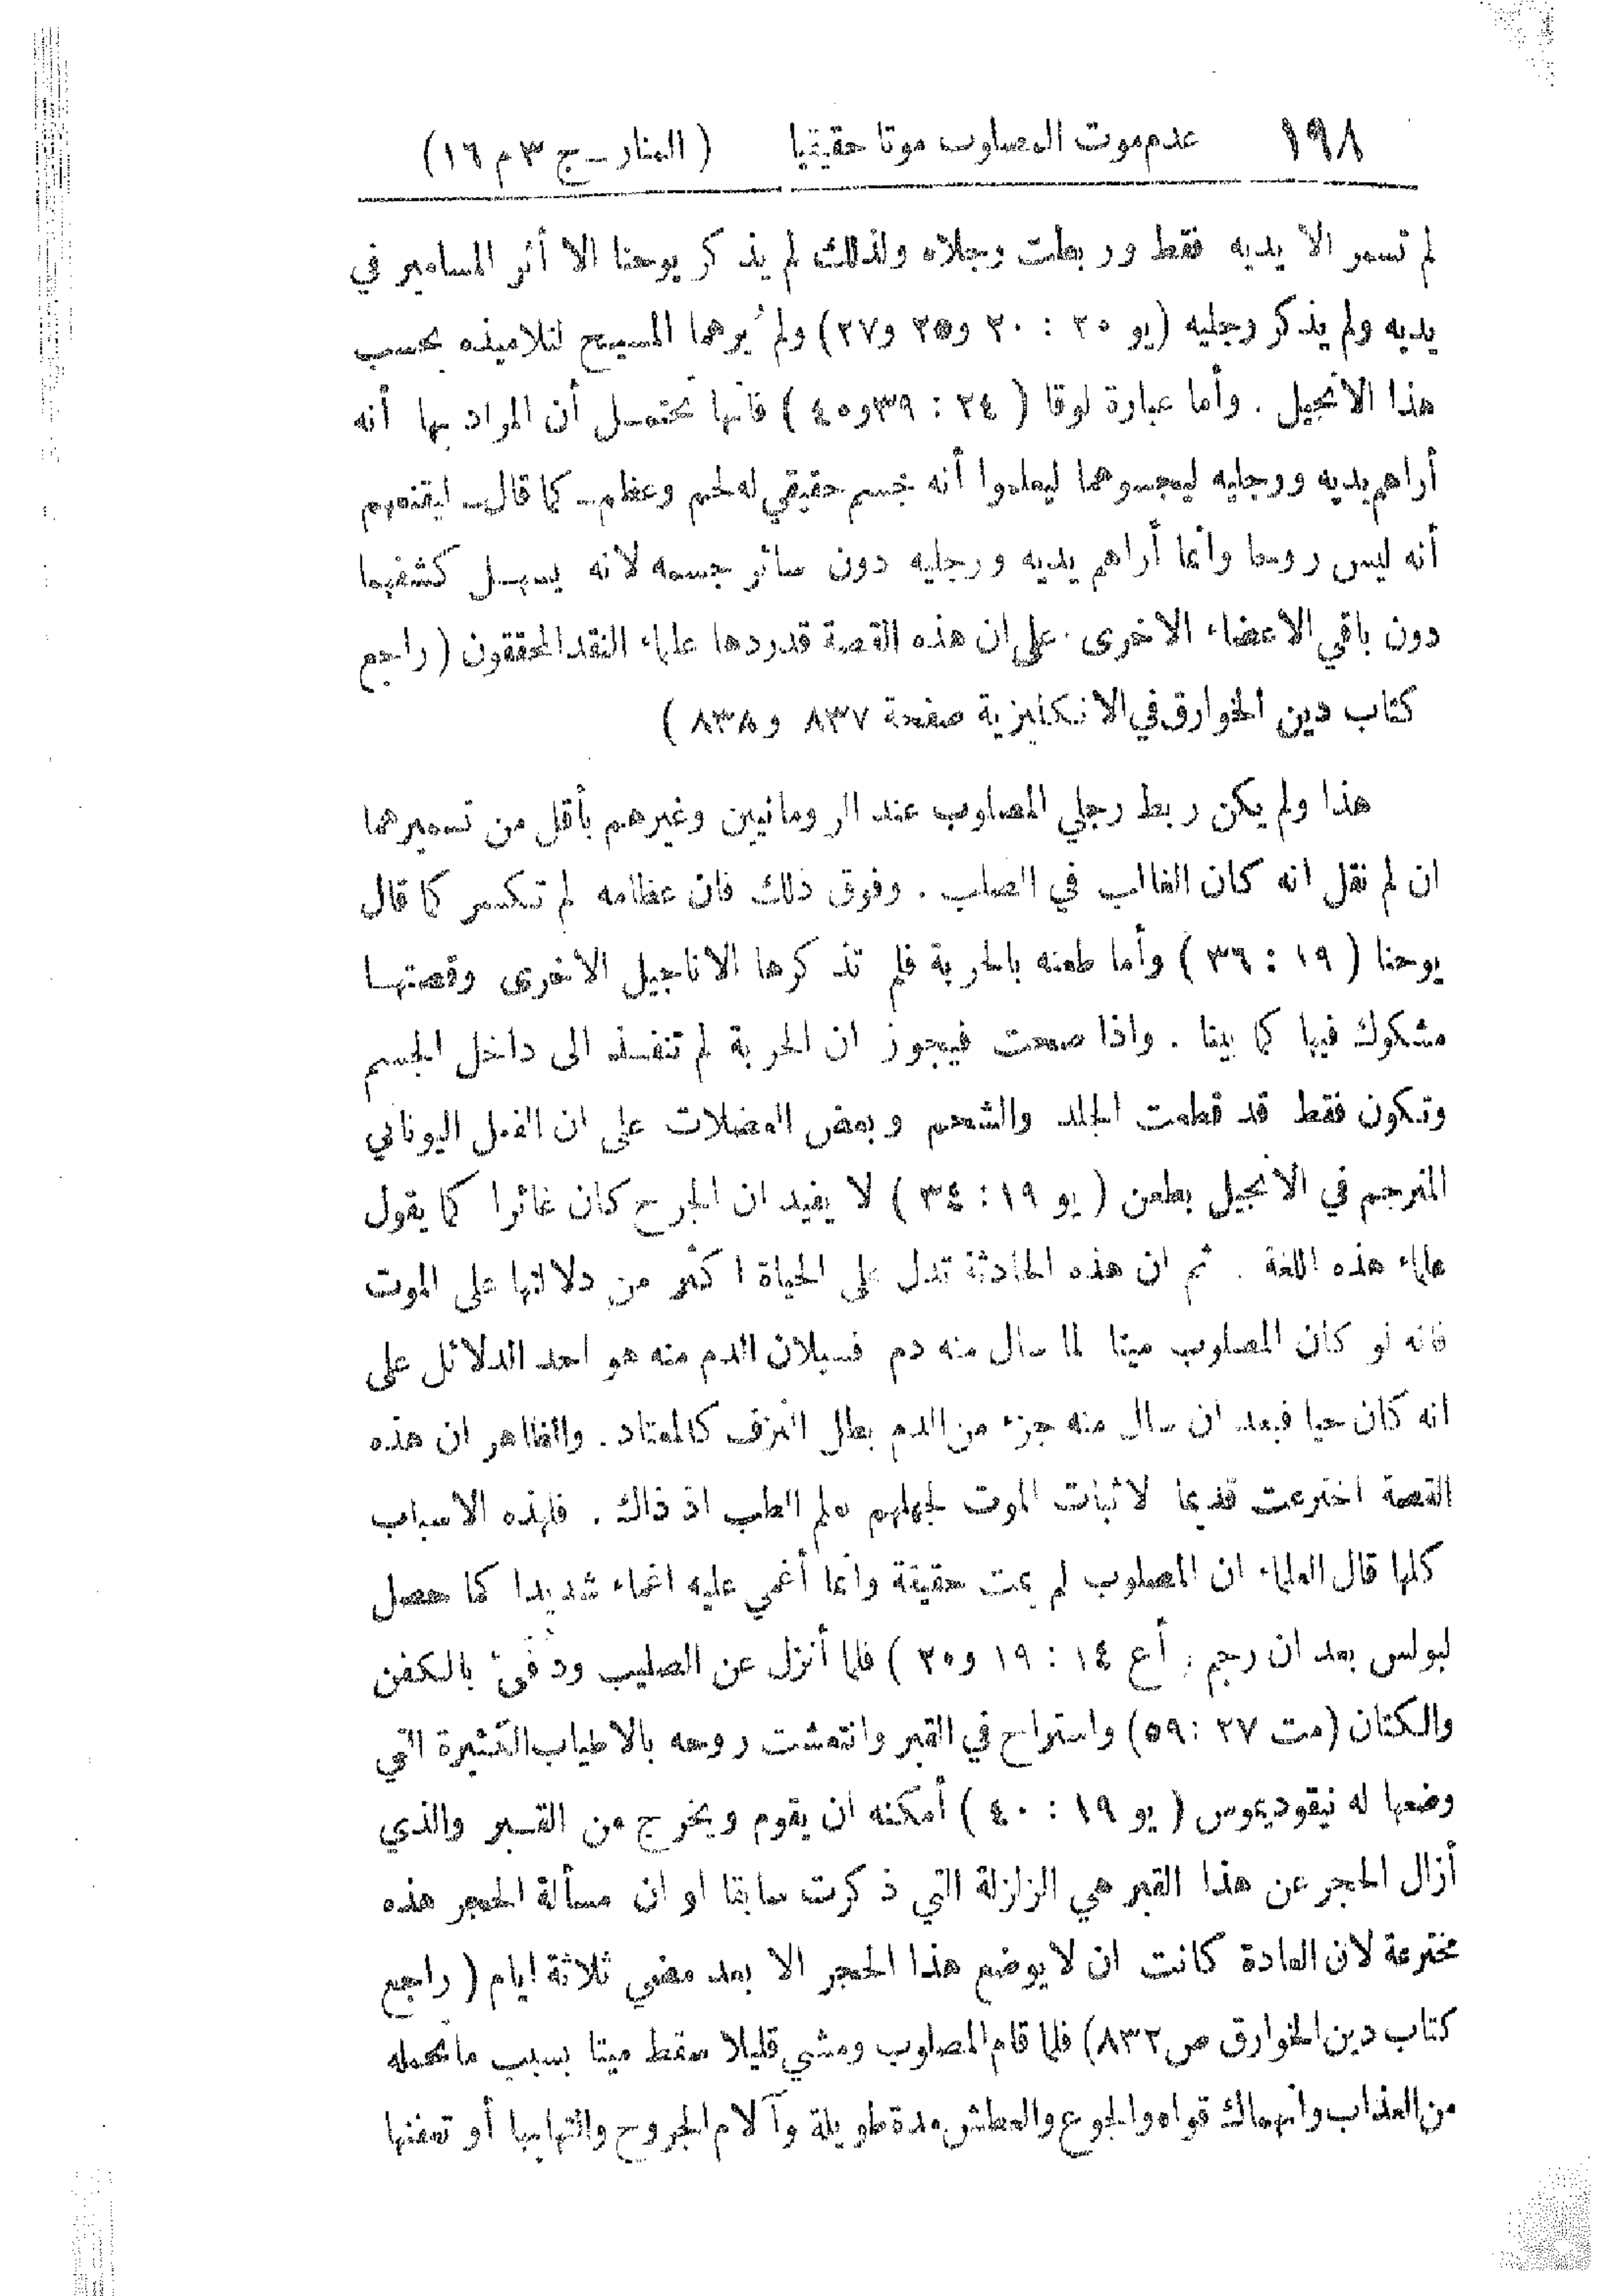 ١٩٨ عدم موت المصلوب موتا حقيقيا (المنار ـ ج ٣ م ١٦)
لم تسمر الا يديه فقط وربطت رجلاه ولذلك لم يذكر يوحنا الا أثر المسامير في
يديه ولم يذكر رجليه (يو ٢٠ : ٢٠ و٢٥ و٢٧) ولم يُرهما المسيح لتلاميذه بحسب
هذا الانجيل . وأما عبارة لوقا ( ٢٤ : ٣٩و٤٠ ) فانها تحتمل أن المراد بها أنه
أراهم يديه ورجليه ليجسوهما ليعلموا أنه جسم حقيقي له لحم وعظم ـ كما قال ـ ليقنعهم
أنه ليس روحا وانما أراهم يديه ورجليه دون سائر جسمه لانه يسهل كشفهما
دون باقي الاعضاء الاخرى . على ان هذه القصة قد ردها علماء النقد المحققون ( راجع
كتاب دين الخوارق في الانكليزية صفحة ٨٣٧ و ٨٣٨ )
هذا ولم يكن ربط رجلي المصلوب عند الرومانيين وغيرهم بأقل من تسميرهما
ان لم نقل انه كان الغالب في الصلب . وفوق ذلك فان عظامه لم تكسر كما قال
يوحنا ( ١٩ : ٣٦ ) وأما طعنه بالحربة فلم تذكرها الاناجيل الاخرى وقصتها
مشكوك فيها كما بينا . واذا صحت فيجوز ان الحربة لم تنفذ الى داخل الجسم
وتكون فقط قد قطعت الجلد والشحم وبعض العضلات على ان الفعل اليوناني
المترجم في الانجيل بطعن ( يو ١٩ : ٣٤ ) لا يفيد ان الجرح كان غائرا كما يقول
علماء هذه اللغة . ثم ان هذه الحادثة تدل على الحياة اكثر من دلالتها على الموت
فانه لو كان المصلوب ميتا لما سال منه دم فسيلان الدم منه هو احد الدلائل على
انه كان حيا فبعد ان سال منه جزء من الدم بطل النزف كالمعتاد . والظاهر ان هذه
القصة اخترعت قديما لاثبات الموت لجهلهم علم الطب اذ ذاك . فلهذه الاسباب
كلها قال العلماء ان المصلوب لم يمت حقيقة وانما أغمي عليه اغماء شديدا كما حصل
لبولس بعد ان رجم ( أع ١٤ : ١٩ و٢٠ ) فلما أنزل عن الصليب ودفئ بالكفن
والكتان (مت ٢٧ : ٥٩) واستراح في القبر وانتعشت روحه بالاطياب الكثيرة التي
وضعها له نيقوديموس ( يو ١٩ : ٤٠ ) أمكنه ان يقوم ويخرج من القبر والذي
أزال الحجر عن هذا القبر هي الزلزلة التي ذكرت سابقا او ان مسألة الحجر هذه
مخترعة لان العادة كانت ان لا يوضع هذا الحجر الا بعد مضي ثلاثة ايام ( راجع
كتاب دين الخوارق ص ٨٣٢) فلما قام المصلوب ومشى قليلا سقط ميتا بسبب ما تحمله
من العذاب وانهماك قواه والجوع والعطش مدة طويلة وآلام الجروح والتهابها أو تعفنها